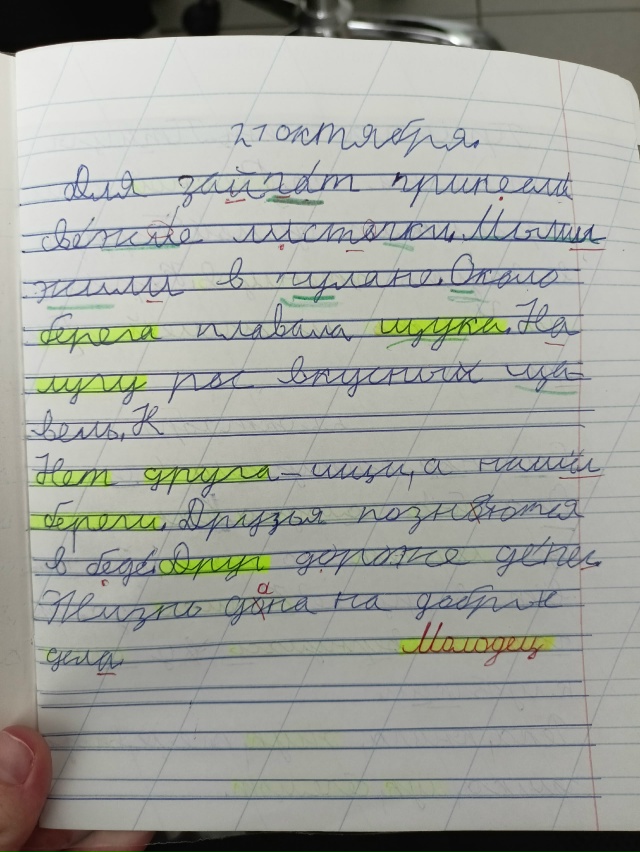 21 октября.
Для зайчат принесли
свежие листочки. Мыши
жили в чулане. Около
берега плавала щука. На
лугу рос вкусных ща-
вель. Н
Нет друга - ищи, а нашёл
береги. Друзья познаются
в беде. Друг дороже денег.
Жизнь дана на добрые
дела
Молодец